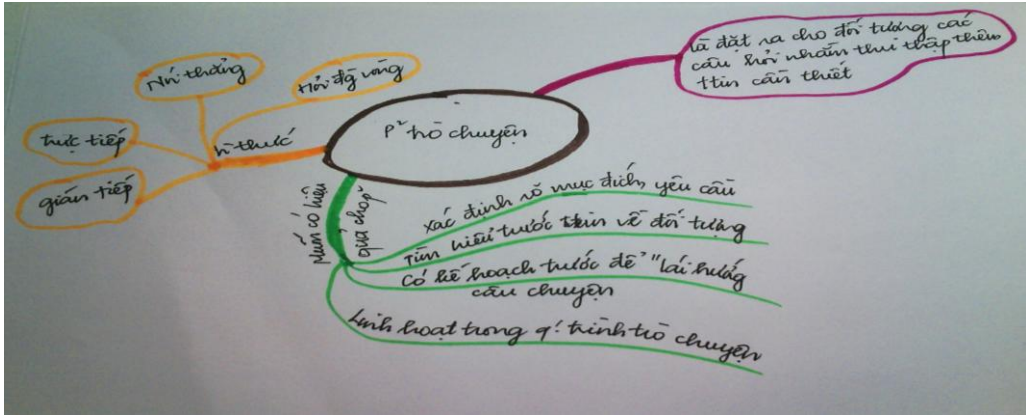 P² trò chuyện
là đặt ra cho đối tượng các
câu hỏi nhằm thu thập thêm
ttin cần thiết
h·thức
Nói thẳng
Hỏi đg vòng
trực tiếp
gián tiếp
Muốn có hiệu
quả cho p²
Xác định rõ mục đích, yêu cầu
Tìm hiểu trước ttin về đối tượng
Có kế hoạch trước để "lái hướng
câu chuyện
Linh hoạt trong q' trình trò chuyện